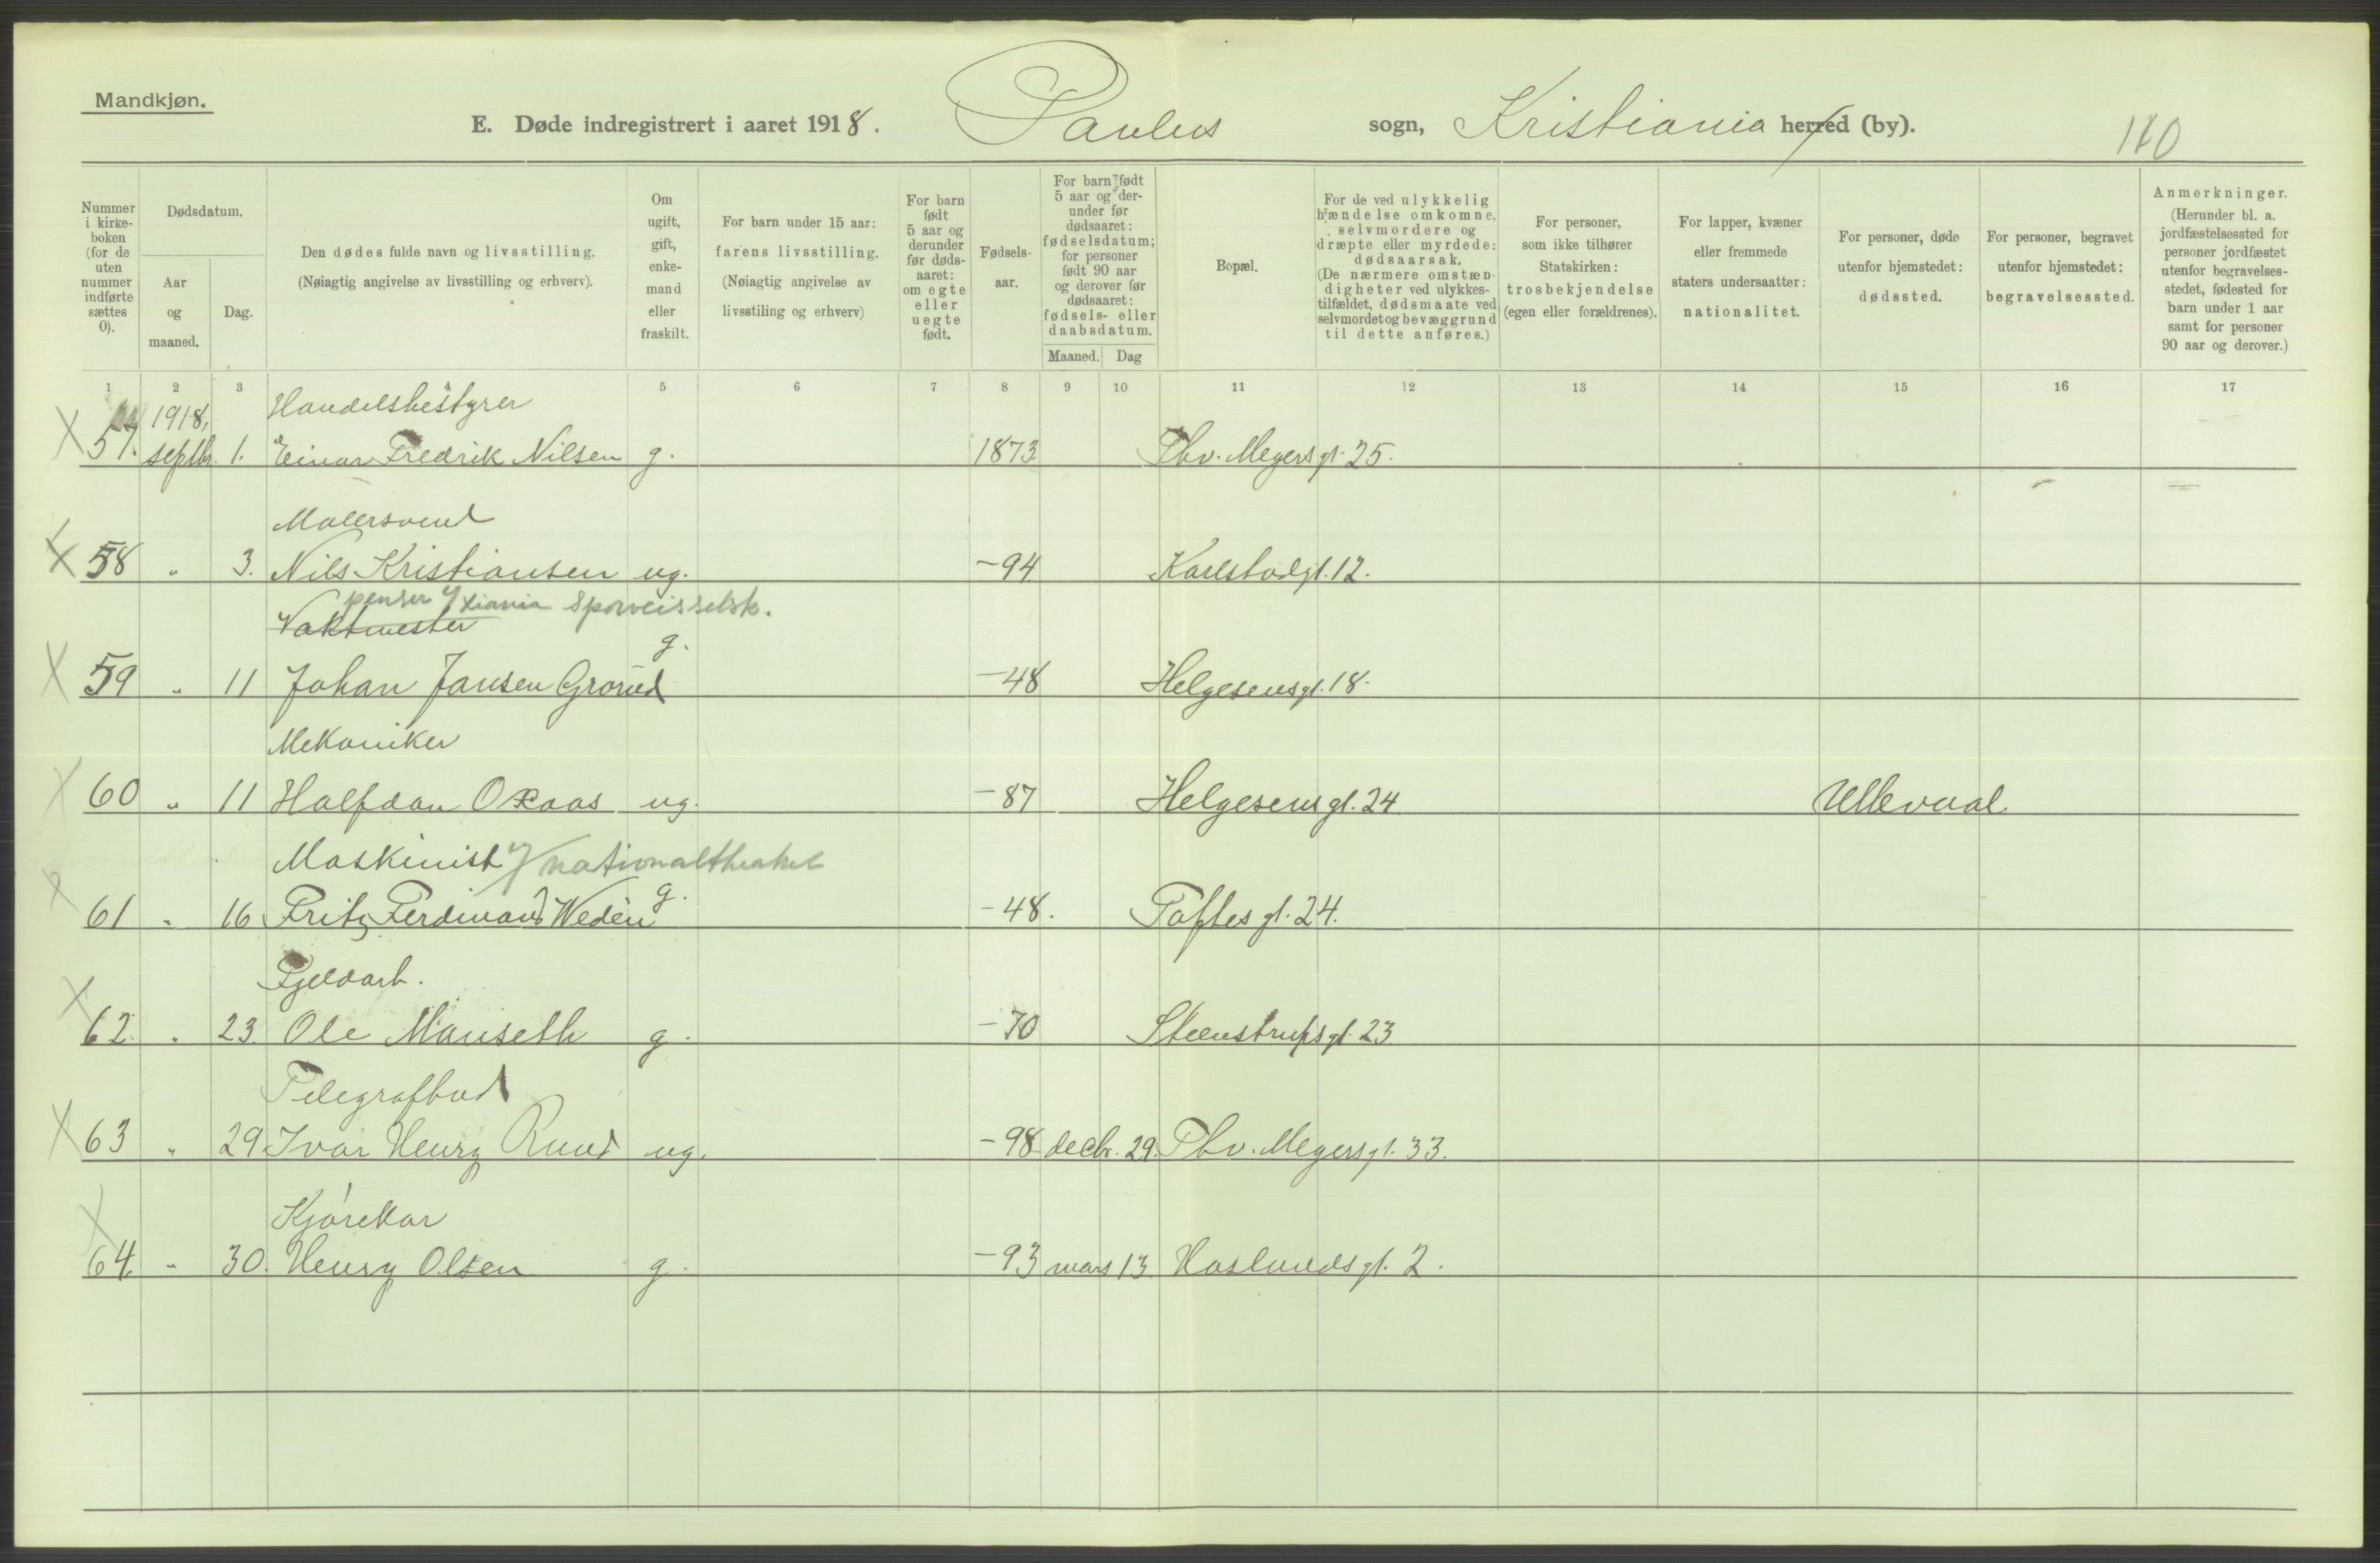 Mandkjøn.
E. Døde indregistrert i aaret 1918. Paulus sogn, Kristiania herred (by).
Nummer i kirkeboken (for de uten nummer indførte sættes 0).
Dødsdatum.
Aar og maaned.
Dag.
Den dødes fulde navn og livsstilling.
(Nøiagtig angivelse av livsstilling og erhverv).
Om ugift, gift, enkemand eller fraskilt.
For barn under 15 aar: farens livsstilling.
(Nøiagtig angivelse av livsstiling og erhverv)
For barn født 5 aar og derunder før dødsaaret: om egte eller uegte født.
Fødselsaar.
For barn født 5 aar og derunder før dødsaaret: fødselsdatum; for personer født 90 aar og derover før dødsaaret: fødsels- eller daabsdatum.
Maaned. Dag
Bopæl.
For de ved ulykkelig hændelse omkomne, selvmordere og dræpte eller myrdede: dødsaarsak.
(De nærmere omstændigheter ved ulykkestilfældet, dødsmaate ved selvmordet og bevæggrund til dette anføres.)
For personer, som ikke tilhører Statskirken: trosbekjendelse (egen eller forældrenes).
For lapper, kvæner eller fremmede staters undersaatter: nationalitet.
For personer, døde utenfor hjemstedet: dødssted.
For personer, begravet utenfor hjemstedet: begravelsessted.
Anmerkninger.
(Herunder bl. a. jordfæstelsessted for personer jordfæstet utenfor begravelsesstedet, fødested for barn under 1 aar samt for personer 90 aar og derover.)
1 2 3 4 5 6 7 8 9 10 11 12 13 14 15 16 17
1918, Handelsbestyrer
57. septbr. 1. Einar Fredrik Nilsen g. 1873 Thv. Meyers gt. 25.
Malersvend
58 " 3. Nils Kristiansen ug. -94 Karlstadgt. 12.
penser v/ Xiania Sporveisselsk.
Vaktmester
59 " 11 Johan Jansen Grorud g. -48 Helgesensgt. 18.
Mekaniker
60 " 11 Halfdan Oxaas ug. -87 Helgesens gt. 24 Ullevaal
Maskinist v/ nationaltheatret
61 " 16 Fritz Ferdinand Wedèn g. -48. Toftes gt. 24.
Fjeldarb.
62. " 23. Ole Manseth g. -70 Steenstrups gt. 23
Telegrafbud
63 " 29 Ivar Henry Ruud ug. -98 decbr. 29. Thv. Meyersgt. 33.
Kjørekar
64. " 30. Henry Olsen g. -93 mars 13 Haslunds gt. 2.